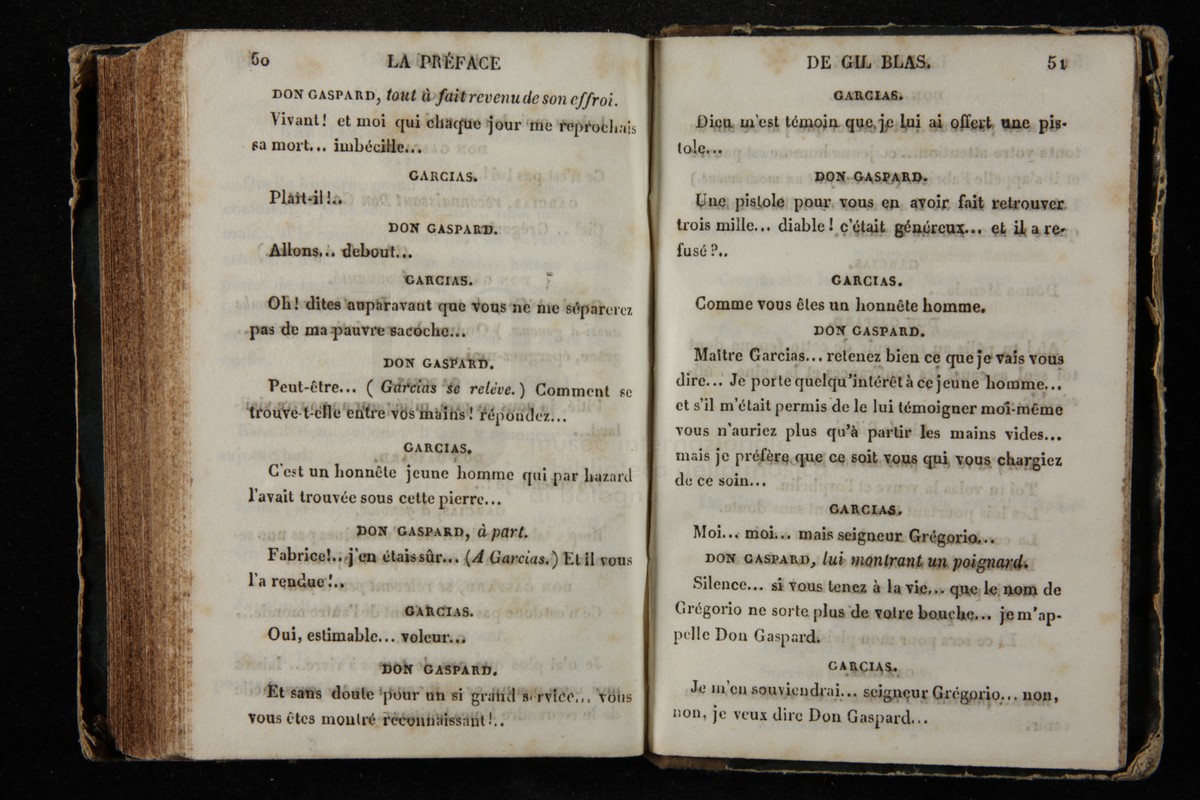 50 LA PRÉFACE
DON GASPARD, tout à fait revenu de son effroi.
Vivant! et moi qui chaque jour me reprochais
sa mort... imbécille...
GARCIAS.
Plaît-il!..
DON GASPARD.
Allons... debout...
GARCIAS.
Oh! dites auparavant que vous ne me séparerez
pas de ma pauvre sacoche...
DON GASPARD.
Peut-être... ( Garcias se relève. ) Comment se
trouve-t-elle entre vos mains! répondez...
GARCIAS.
C'est un honnête jeune homme qui par hazard
l'avait trouvée sous cette pierre...
DON GASPARD, à part.
Fabrice!.. j'en étais sûr... (A Garcias.) Et il vous
l'a rendue!..
GARCIAS.
Oui, estimable... voleur...
DON GASPARD.
Et sans doute pour un si grand service... vous
vous êtes montré reconnaissant!..
DE GIL BLAS. 51
GARCIAS.
Dieu m'est témoin que je lui ai offert une pis-
tole...
DON GASPARD.
Une pistole pour vous en avoir fait retrouver
trois mille... diable! c'était généreux... et il a re-
fusé?..
GARCIAS.
Comme vous êtes un honnête homme.
DON GASPARD.
Maître Garcias... retenez bien ce que je vais vous
dire... Je porte quelqu'intérêt à ce jeune homme...
et s'il m'était permis de le lui témoigner moi-même
vous n'auriez plus qu'à partir les mains vides...
mais je préfère que ce soit vous qui vous chargiez
de ce soin...
GARCIAS.
Moi... moi... mais seigneur Grégorio...
DON GASPARD, lui montrant un poignard.
Silence... si vous tenez à la vie... que le nom de
Grégorio ne sorte plus de votre bouche... je m'ap-
pelle Don Gaspard.
GARCIAS.
Je m'en souviendrai... seigneur Grégorio... non,
non, je veux dire Don Gaspard...